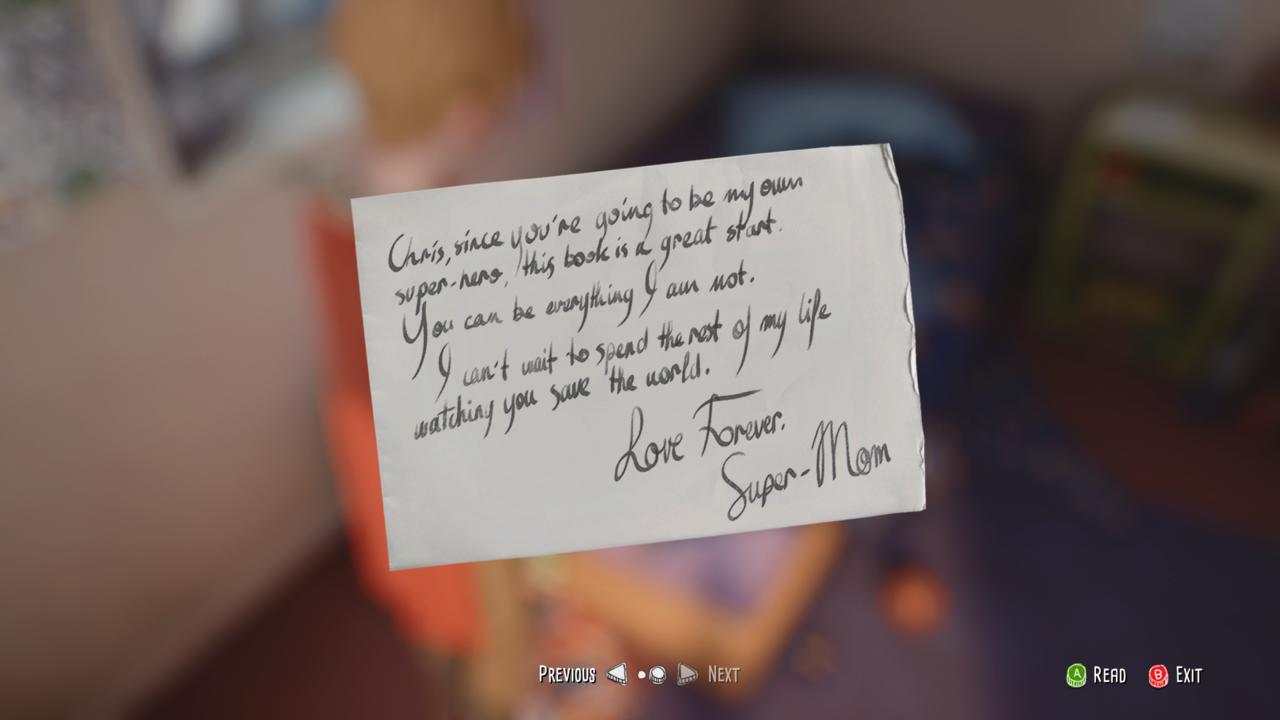 Chris, since you're going to be my own
super-hero, this book is a great start.
You can be everything I am not.
I can't wait to spend the rest of my life
watching you save the world.
Love Forever.
Super-Mom
PREVIOUS NEXT
A READ B EXIT